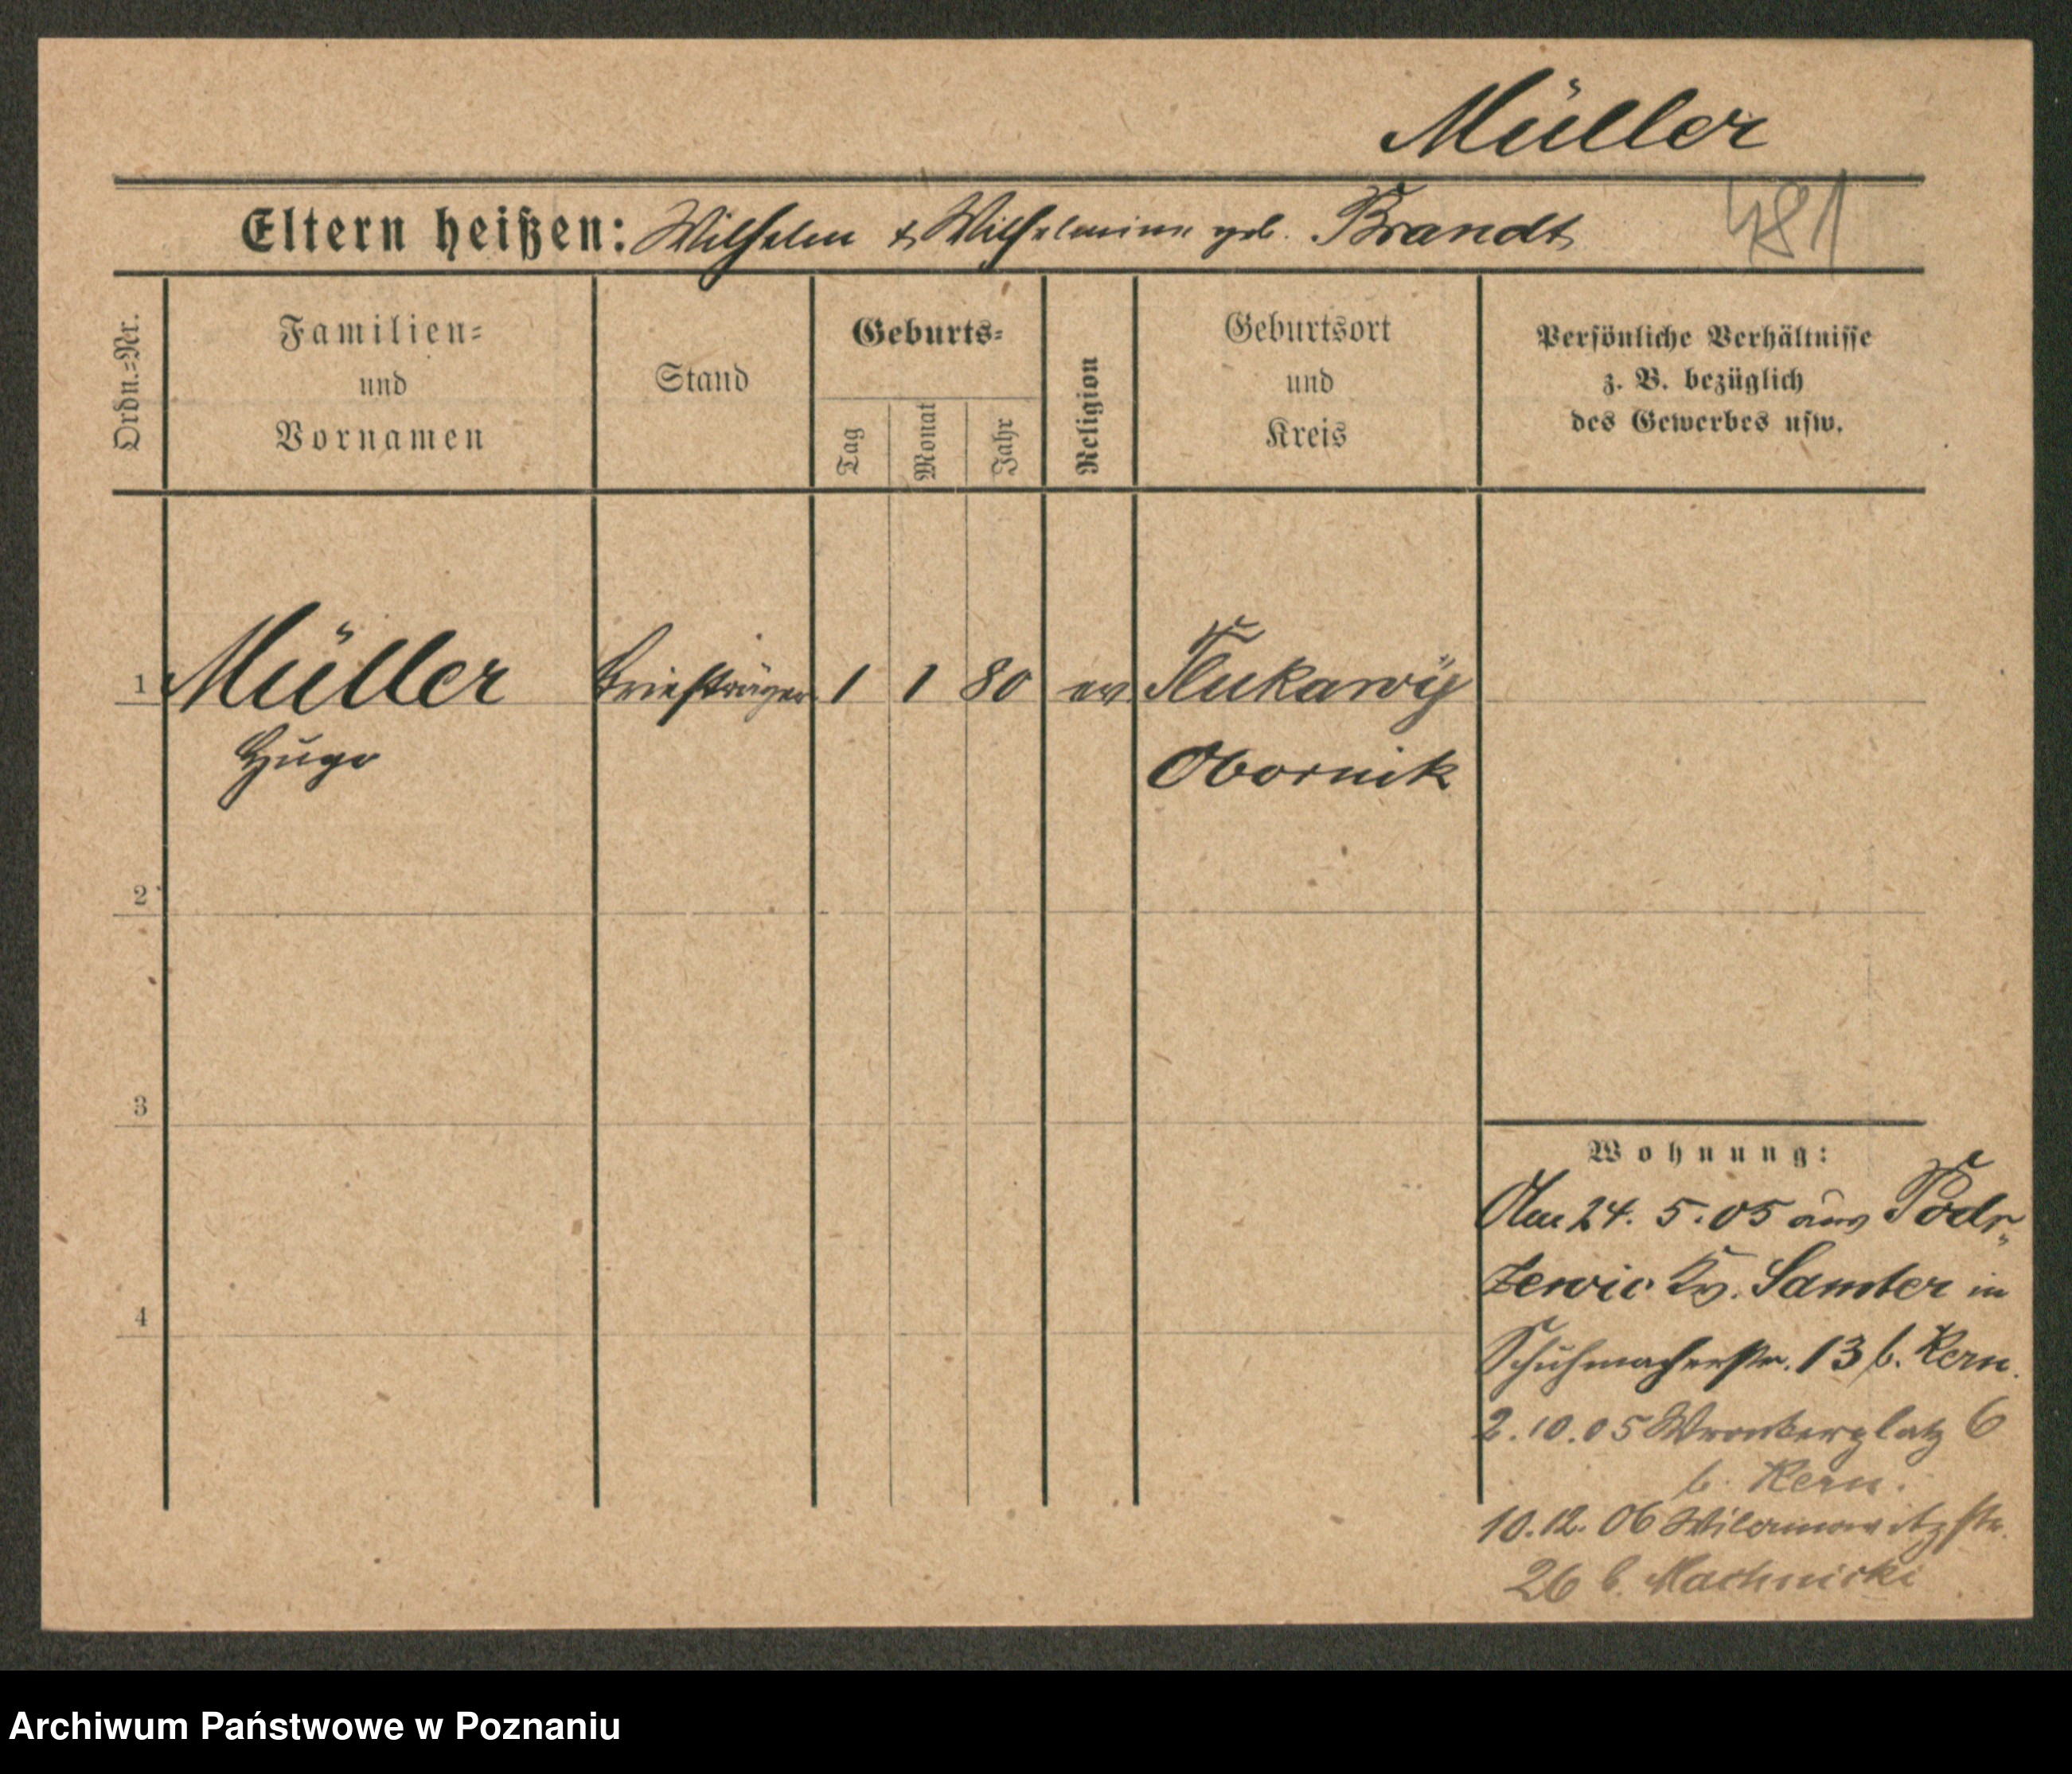 Müller
Eltern heißen: Wilhelm & Wilhelmine geb. Brandt
481
Ordn.=Nr.
Familien=
und
Vornamen
Stand
Geburts=
Tag
Monat
Jahr
Religion
Geburtsort
und
Kreis
Persönliche Verhältnisse
z. B. bezüglich
des Gewerbes usw.
1 Müller Briefträger 1 1 80 ev Tlukawy
Hugo Obornik
2
3
4
Wohnung:
Am 24. 5. 05 aus Podr„
zewie Kr. Samter in
Schuhmacherstr. 13 b. Kern.
2.10.05 Wronkerplatz 6
b. Kern.
10.12.06 Wilamowitzstr.
26 b. Machnicki
Archiwum Państwowe w Poznaniu